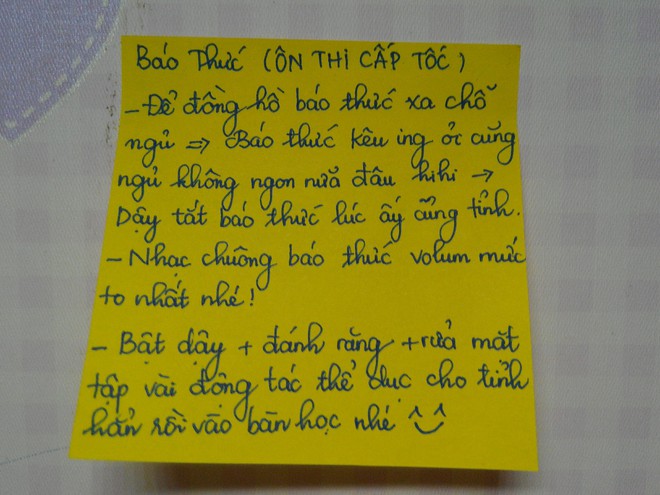 Báo Thức (ÔN THI CẤP TỐC)
- Để đồng hồ báo thức xa chỗ
ngủ => Báo thức kêu ing ỏi cũng
ngủ không ngon nữa đâu hihi →
Dậy tắt báo thức lúc ấy cũng tỉnh.
- Nhạc chuông báo thức volum mức
to nhất nhé!
- Bật dậy + đánh răng + rửa mặt
tập vài động tác thể dục cho tỉnh
hẳn rồi vào bàn học nhé ^‿^